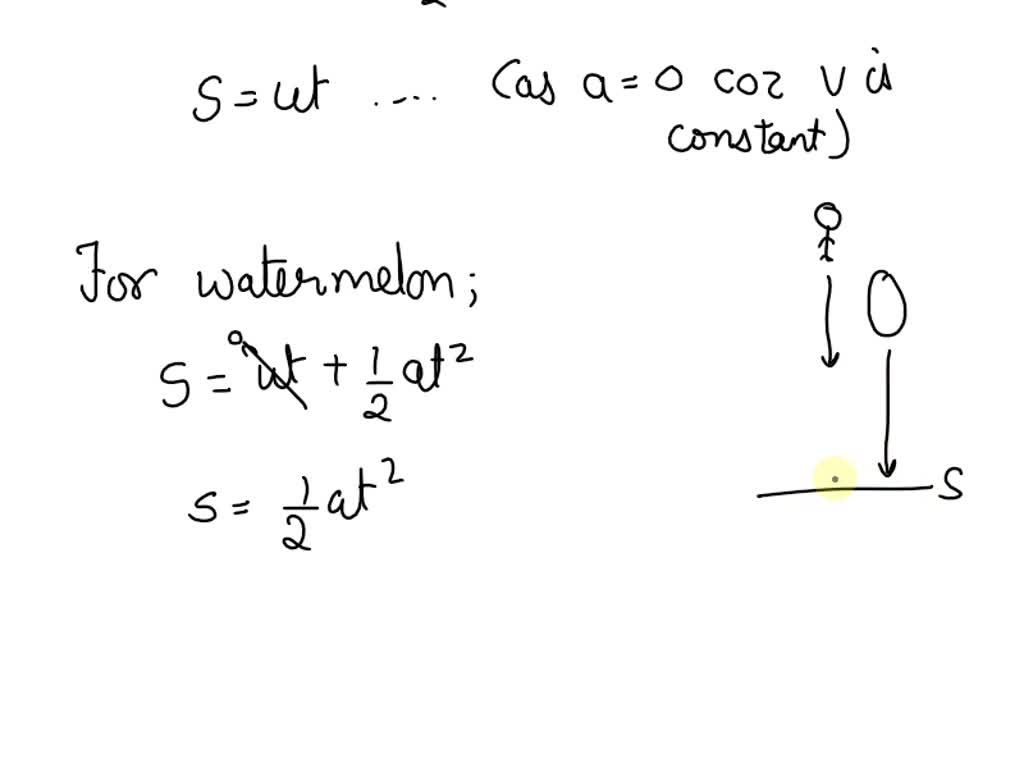 2
S = ut .... (as a = 0 coz v is
constant)
For watermelon;
S = ut⁰ + 1/2 at²
s = 1/2 at²
S